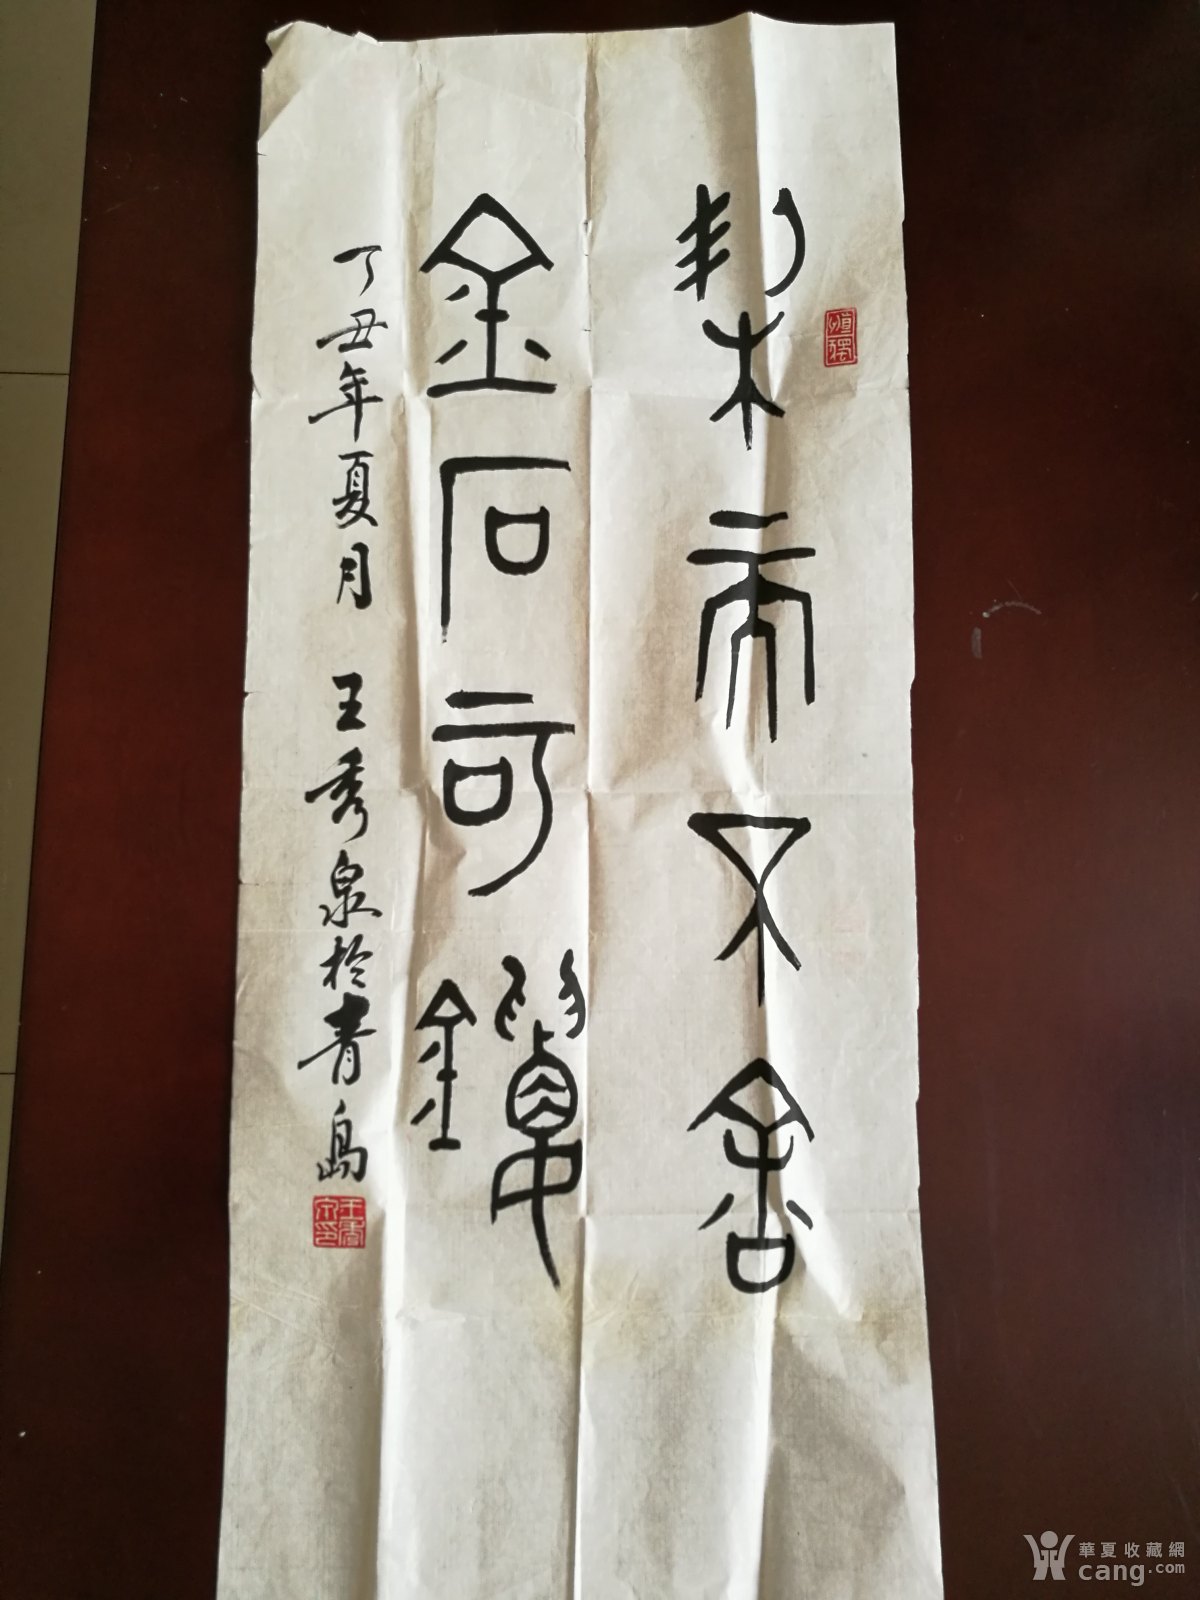 栔而不舍
金石可鏤
丁丑年夏月 王秀泉於青島
華夏收藏網
cang.com